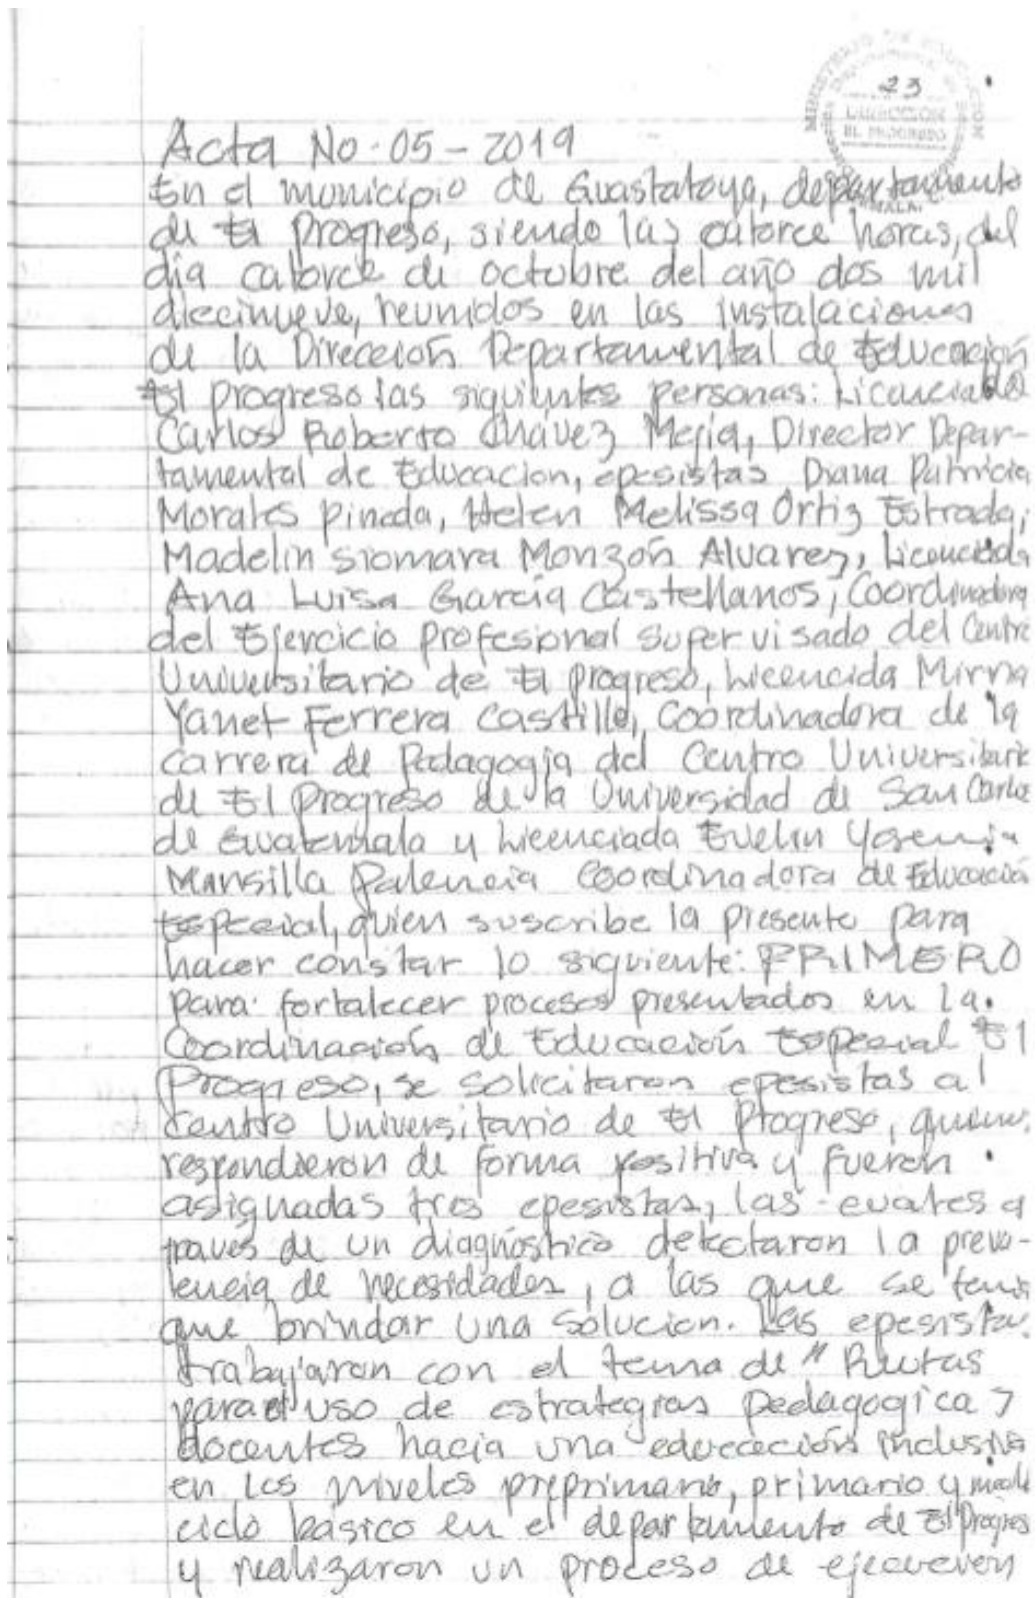 23
DIRECCION
EL PROGRESO
Acta No. 05-2019
En el municipio de Guastatoya, departamento
de El Progreso, siendo las catorce horas, del
dia catorce de octubre del año dos mil
diecinueve, reunidos en las instalaciones
de la Dirección Departamental de Educación
El Progreso las siguientes personas: Licenciado
Carlos Roberto Chávez Mejia, Director Depar-
tamental de Educacion, epesistas Diana Patricia
Morales Pineda, Helen Melissa Ortiz Estrada,
Madelin Siomara Monzón Alvarez, Licenciada
Ana Luisa García Castellanos, Coordinadora
del Ejercicio Profesional Supervisado del Centro
Universitario de El Progreso, Licencida Mirna
Yanet Ferrera Castillo, Coordinadora de la
Carrera de Pedagogia del Centro Universitario
de El Progreso de la Universidad de San Carlos
de Guatemala y Licenciada Evelin Yesenia
Mansilla Palencia Coordinadora de Educación
Especial, quien suscribe la presente para
hacer constar lo siguiente: PRIMERO
para fortalecer procesos presentados en la
Coordinación de Educación Especial El
Progreso, se solicitaron epesistas al
Centro Universitario de El Progreso, quienes
respondieron de forma positiva y fueron
asignadas tres epesistas, las cuales a
traves de un diagnóstico detectaron la preva-
lencia de necesidades, a las que se tenia
que brindar una solucion. Las epesistas
trabajaron con el tema de "Rutas
para el uso de estrategias pedagogicas
docentes hacia una educación inclusiva
en los niveles preprimario, primario y medio
ciclo básico en el departamento de El Progreso
y realizaron un proceso de ejecución